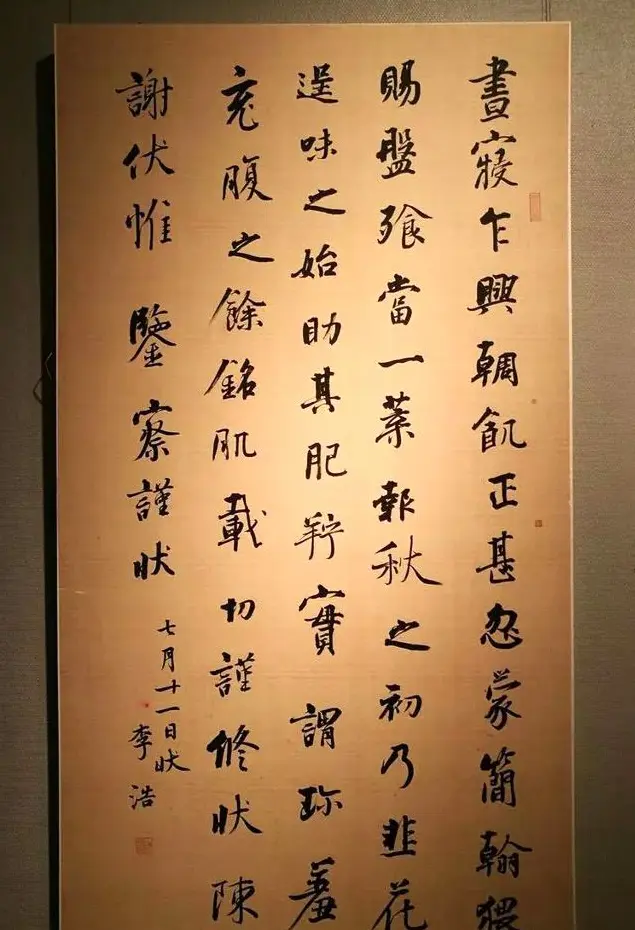 晝寢乍興輖飢正甚忽蒙簡翰猥
賜盤飧當一葉報秋之初乃韭花
逞味之始助其肥羜實謂珍羞
充腹之餘銘肌載切謹脩狀陳
謝伏惟鑒察謹狀
七月十一日狀
李浩